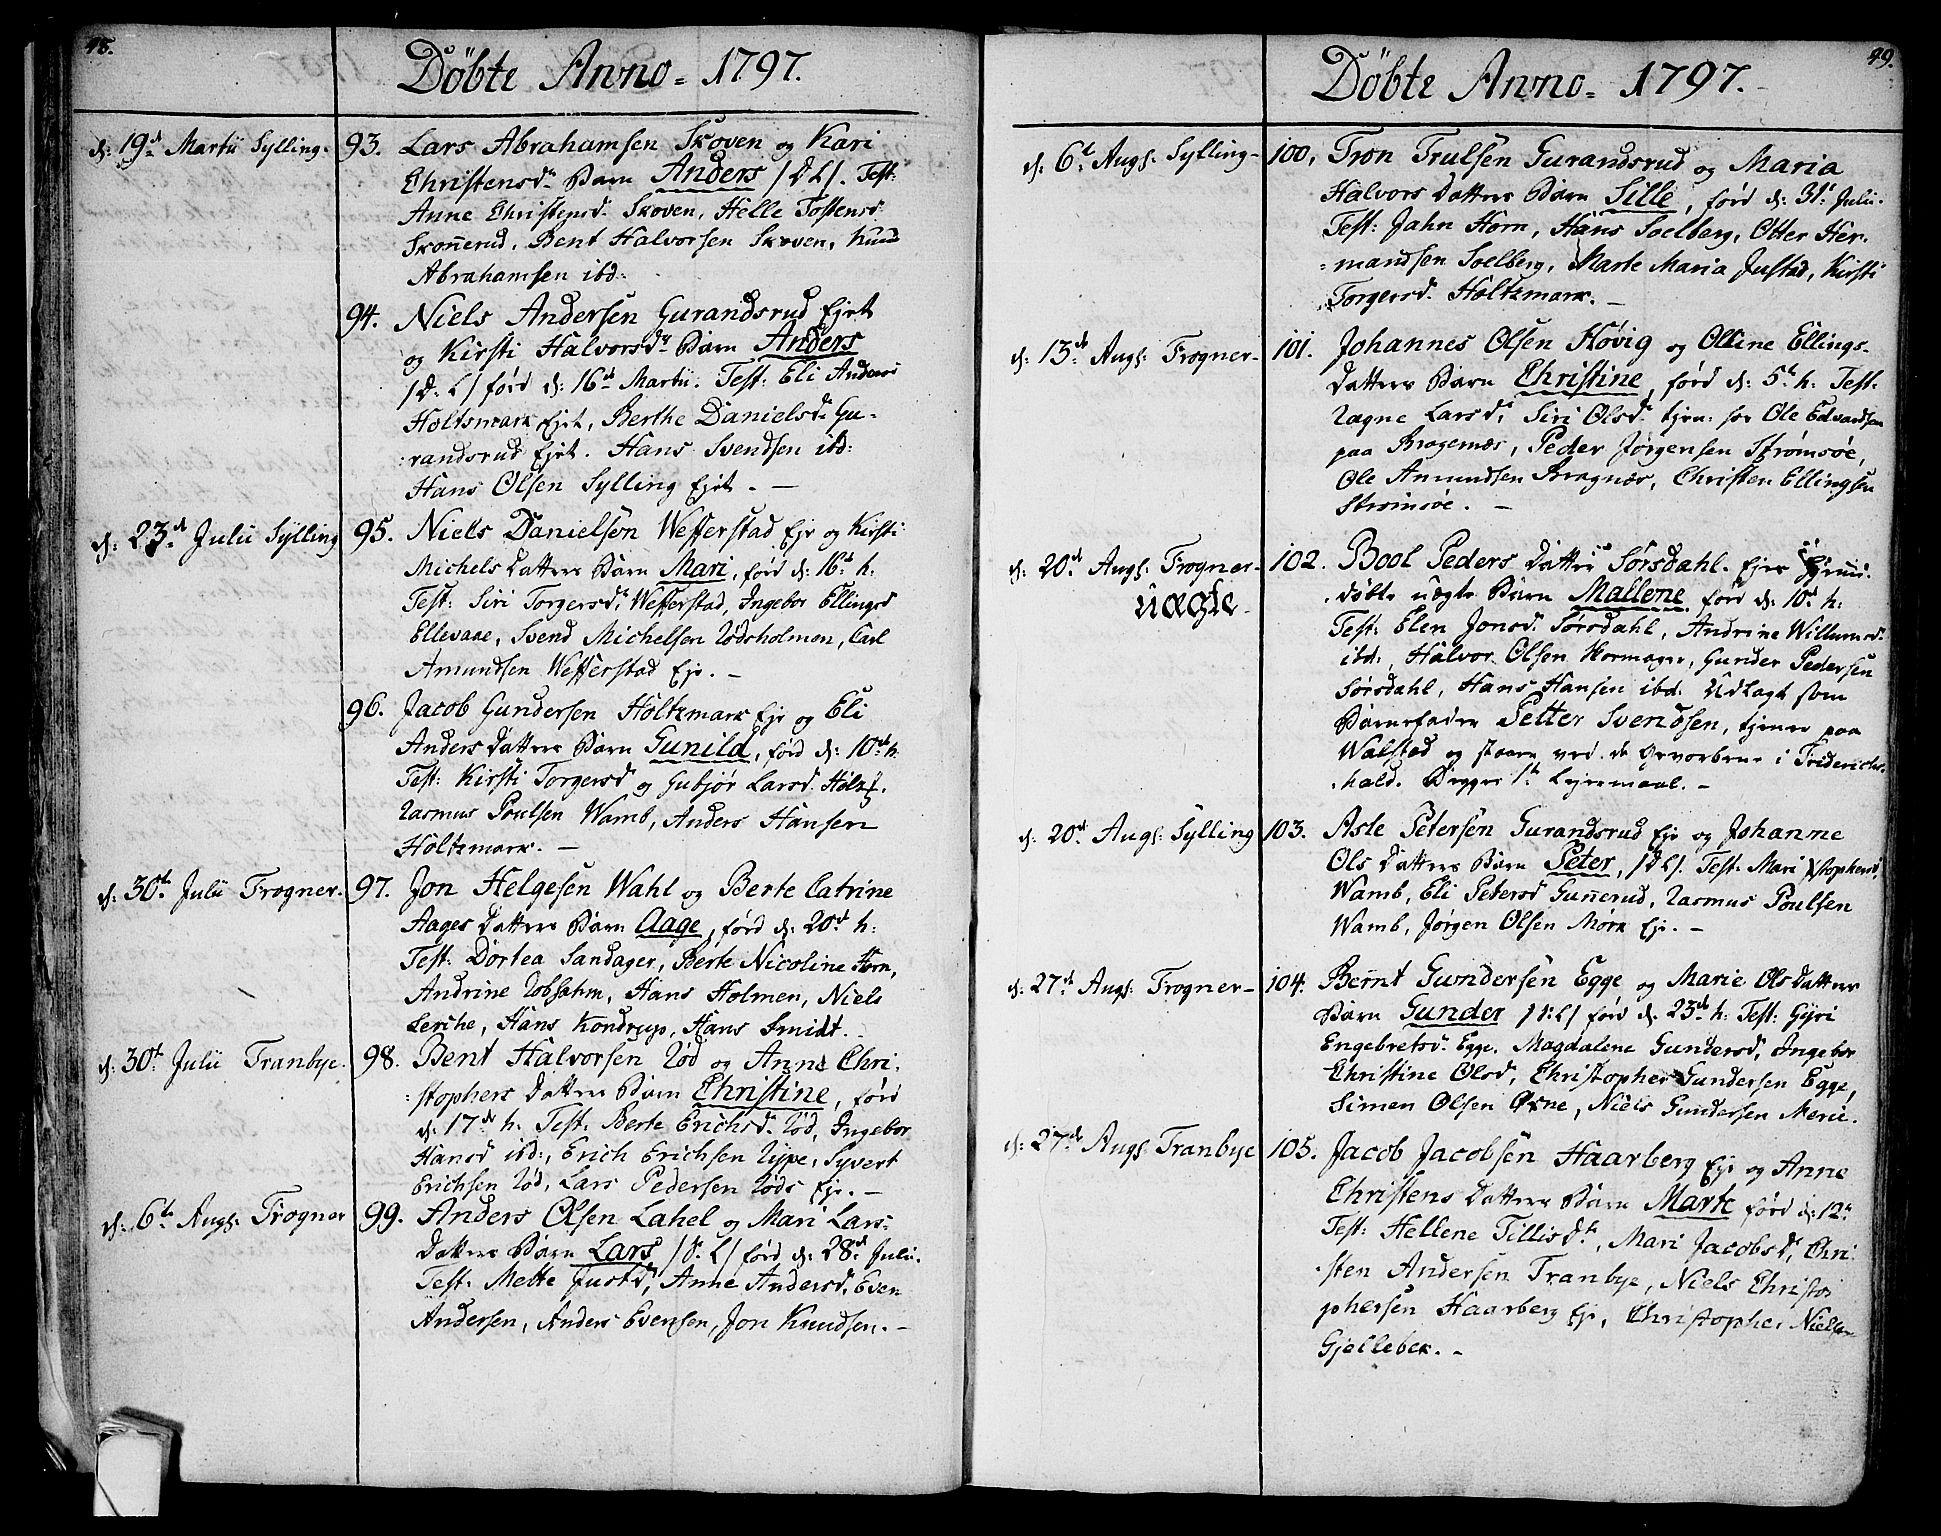 48.
Döbte Anno = 1797.
d: 19d Martii Sylling. 93. Lars Abrahamsen Skoven og Kari
Christensd. Barn Anders /D.L/. Test:
Anne Christensd. Skoven, Helle Tostensd.
Skonnerud, Bent Halvorsen Skoven, Knud
Abrahamsen ibd.
94. Niels Andersen Gurandsrud Ejet
og Kirsti Halvorsdr Barn Anders
/D. L/ förd d: 16d Martii. Test: Eli Anders
Holtsmark Ejet, Berthe Danielsd. Gu-
randsrud Ejet. Hans Svendsen ibd:
Hans Olsen Sylling Ejet. –
d: 23d Julii Sylling 95. Niels Danielsen Wefferstad Eje og Kirsti
Michels Datters Barn Mari, förd d: 16d h:
Test: Siri Torgersd. Wefferstad, Ingebor Ellingsd
Ellevare, Svend Michelsen Rödsholmen, Carl
Amundsen Wefferstad Eje. –
96. Jacob Gundersen Holtzmark Eje og Eli
Anders Datters Barn Gunild, förd d: 10d h.
Test: Kirsti Torgersd og Gubjør Larsd. Holtz.
Rasmus Poulsen Wamb, Anders Hansen
Holtzmark. –
d: 30t Julii Frogner. 97. Jon Helgesen Wahl og Berte Catrine
Aages Datters Barn Aage, förd d: 20d h:
Test: Dortea Sandager, Berte Nicoline Horn,
Andrine Robsahm, Hans Holmen, Niels
Lerche, Hans Kondrup, Hans Smidt. –
d: 30t Julii Tranbye. 98. Bent Halvorsen Röd og Anne Chri-
stophers Datters Barn Christine, förd
d: 17d h. Test: Berte Erichsd. Röd, Ingebor
Hansd ibd:, Erich Erichsen Rype, Syvert
Erichsen Röd, Lars Pedersen Röds Eje. –
d: 6t Augs: Frogner 99. Anders Olsen Lahel og Mari Lars-
Datters Barn Lars /D. L/ förd d: 28d Julii.
Test: Mette Justd, Anne Andersd, Even
Andersen, Anders Evensen, Jon Knudsen. –
49.
Döbte Anno = 1797.
d: 6t Augs: Sylling – 100, Tron Trulsen Gurandsrud og Maria
Halvors Datters Barn Sille, förd d: 31t Julii.
Test: Jahn Horn, Hans Soelberg, Otter Her-
mandsen Soelberg, Marte Maria Justad, Kirsti
Torgersd. Holtzmark. –
d: 13de Augs: Frogner – 101. Johannes Olsen Høvig og Olline Ellings-
Datters Barn Christine, förd d: 5t h: Test:
Ragne Larsd, Siri Olsd. tjen: for Ole Edvardsen
paa Bragernæs, Peder Jørgensen Strømsøe,
Ole Amundsen Bragnæs, Christen Ellingsen
Strømsøe. –
d: 20d Augs: Frogner – 102. Bool Peders Datter Sørsdahl. Ejes hjem-
uægte döbte uægte Barn Mallene förd d: 10d h:
Test: Elen Jonsd. Sørsdahl, Andrine Willumsd.
ibd:, Halvor Olsen Kormager, Gunder Pedersen
Sørsdahl, Hans Hansen ibd: Udlagt som
Barnefader Petter Svendsen, tjener paa
Walstad og staar ved de Hvervede i Friderichs-
hald. Begges 1te Lejermaal. –
d: 20d Augs: Sylling 103. Asle Petersen Gurandsrud Eje og Johanne
Ols Datters Barn Peter, /D.L/. Test: Mari Stophersd,
Wamb, Eli Petersd Gunnerud, Rasmus Poulsen
Wamb, Jørgen Olsen Mørk Eje. –
d: 27d Augs: Frogner – 104. Bernt Gundersen Egge og Marie Ols Datters
Barn Gunder /D:L/ förd d: 23d h: Test: Gyri
Engebretsd. Egge, Magdalene Gundersd, Ingebor
Christine Olsd, Christopher Gundersen Egge,
Simen Olsen Øsne, Niels Gundersen Merie.
d: 27de Augs: Tranbye 105. Jacob Jacobsen Haarberg Eje og Anne
Christens Datters Barn Marte förd d: 12t
Test: Hellene Tillisdr, Mari Jacobsd, Chri-
sten Andersen Tranbye, Niels Christo-
phersen Haarberg Eje, Christopher Nielsen
Gjellebek. –